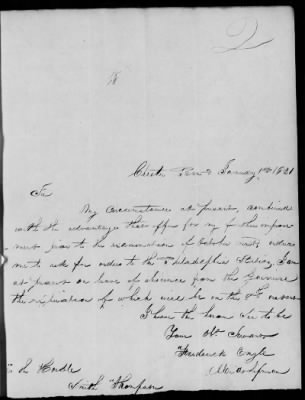 2
Chester Penn^a January 1st 1821
Sir
My circumstances at present, combined
with the advantages that offer for my further improve
ment prior to the examination of October next, induce
me to ask for orders to the Philadelphia Station, I am
at present on leave of absence from the Guerriere
the expiration of which will be on the 9th
I have the honor Sir to be
Your Ob^t Servant
Frederick Engle
Midshipman
Smith Thompson